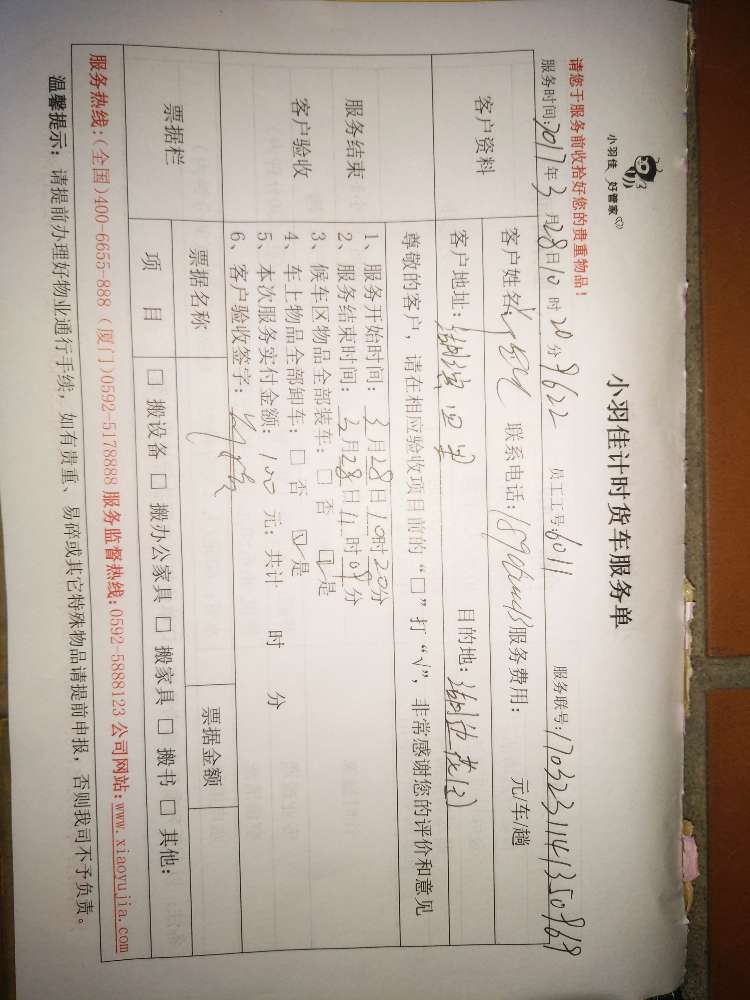 小羽佳 好管家
小羽佳计时货车服务单
请您于服务前收拾好您的贵重物品！
服务时间：2017年3月28日10时20分 员工工号：6011 服务联号：
客户资料
客户姓名： 联系电话： 服务费用： 元/车/趟
客户地址： 目的地：
尊敬的客户，请在相应验收项目前的“□”打“√”，非常感谢您的评价和意见
服务结束
客户验收
1、服务开始时间：3月28日10时20分
2、服务结束时间：3月28日11时09分
3、候车区物品全部装车：□ 否 ☑是
4、车上物品全部卸车：□ 否 ☑是
5、本次服务实付金额：100元；共计 时 分
6、客户验收签字：
票据栏
票据名称 票据金额
项 目 □ 搬设备 □ 搬办公家具 □ 搬家具 □ 搬书 □ 其他：
服务热线：(全国)400-6655-888 (厦门)0592-5178888 服务监督热线：0592-5888123 公司网站：www.xiaoyujia.com
温馨提示：请提前办理好物业通行手续，如有贵重、易碎或其它特殊物品请提前申报，否则我司不予负责。